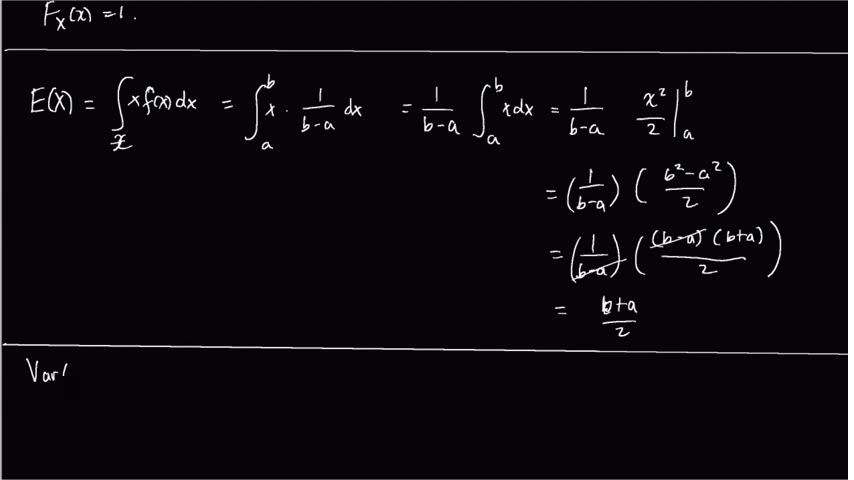 F_X(x) = 1.
E(X) = ∫_𝓧 x f(x) dx = ∫_a^b x · 1/(b-a) dx = 1/(b-a) ∫_a^b x dx = 1/(b-a) x²/2 |_a^b
= (1/(b-a)) ((b²-a²)/2)
= (1/(b-a)) ((b-a)(b+a)/2)
= (b+a)/2
Var(